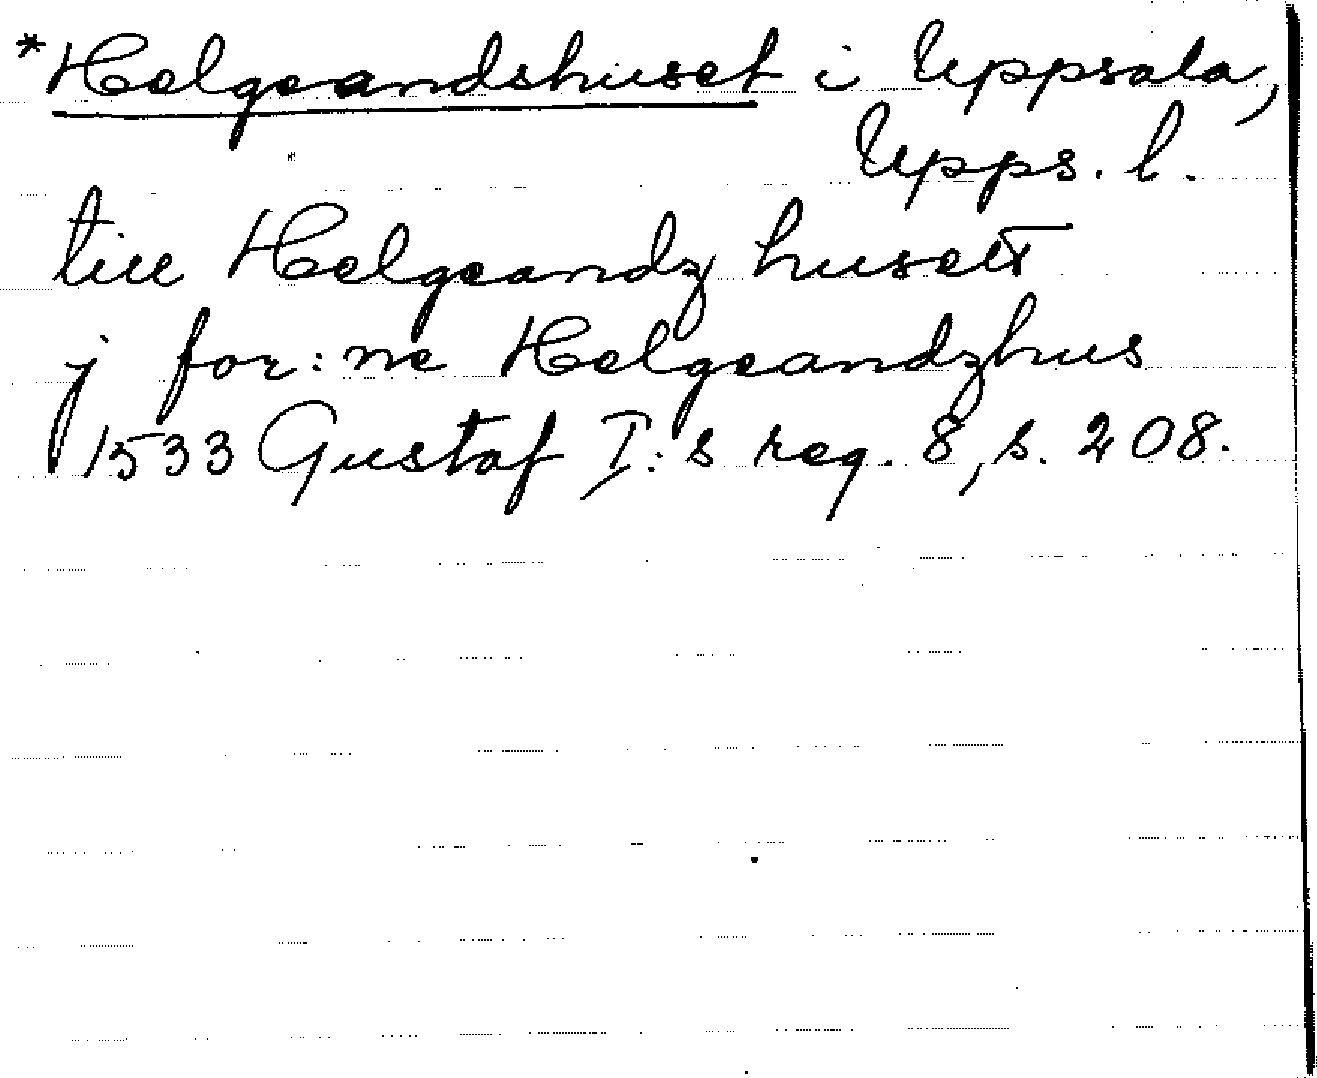 *Helgeandshuset i Uppsala,
Upps. l.
till Helgeandz husett
j for:ne Helgeandzhus
1533 Gustaf I:s reg. 8, s. 208.